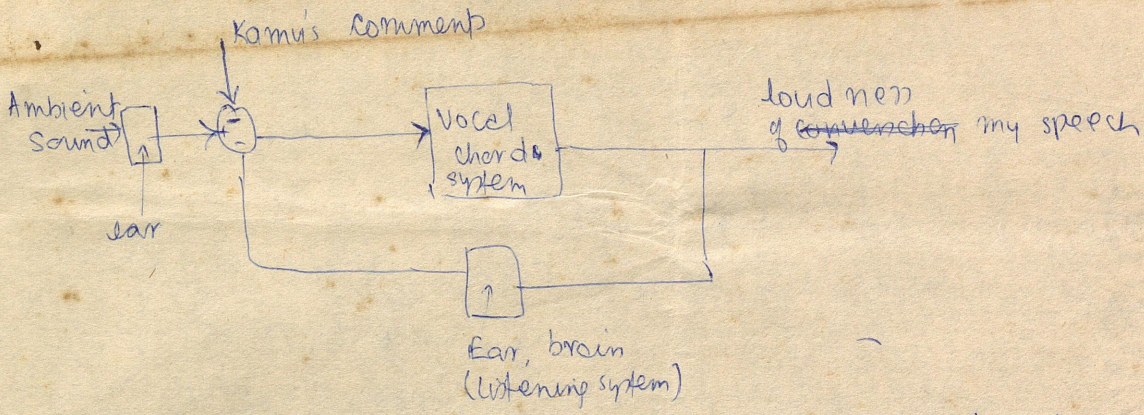 Kamu's comments
Ambient
Sound
ear
Vocal
chords
system
loudness
of convention my speech
Ear, brain
(listening system)